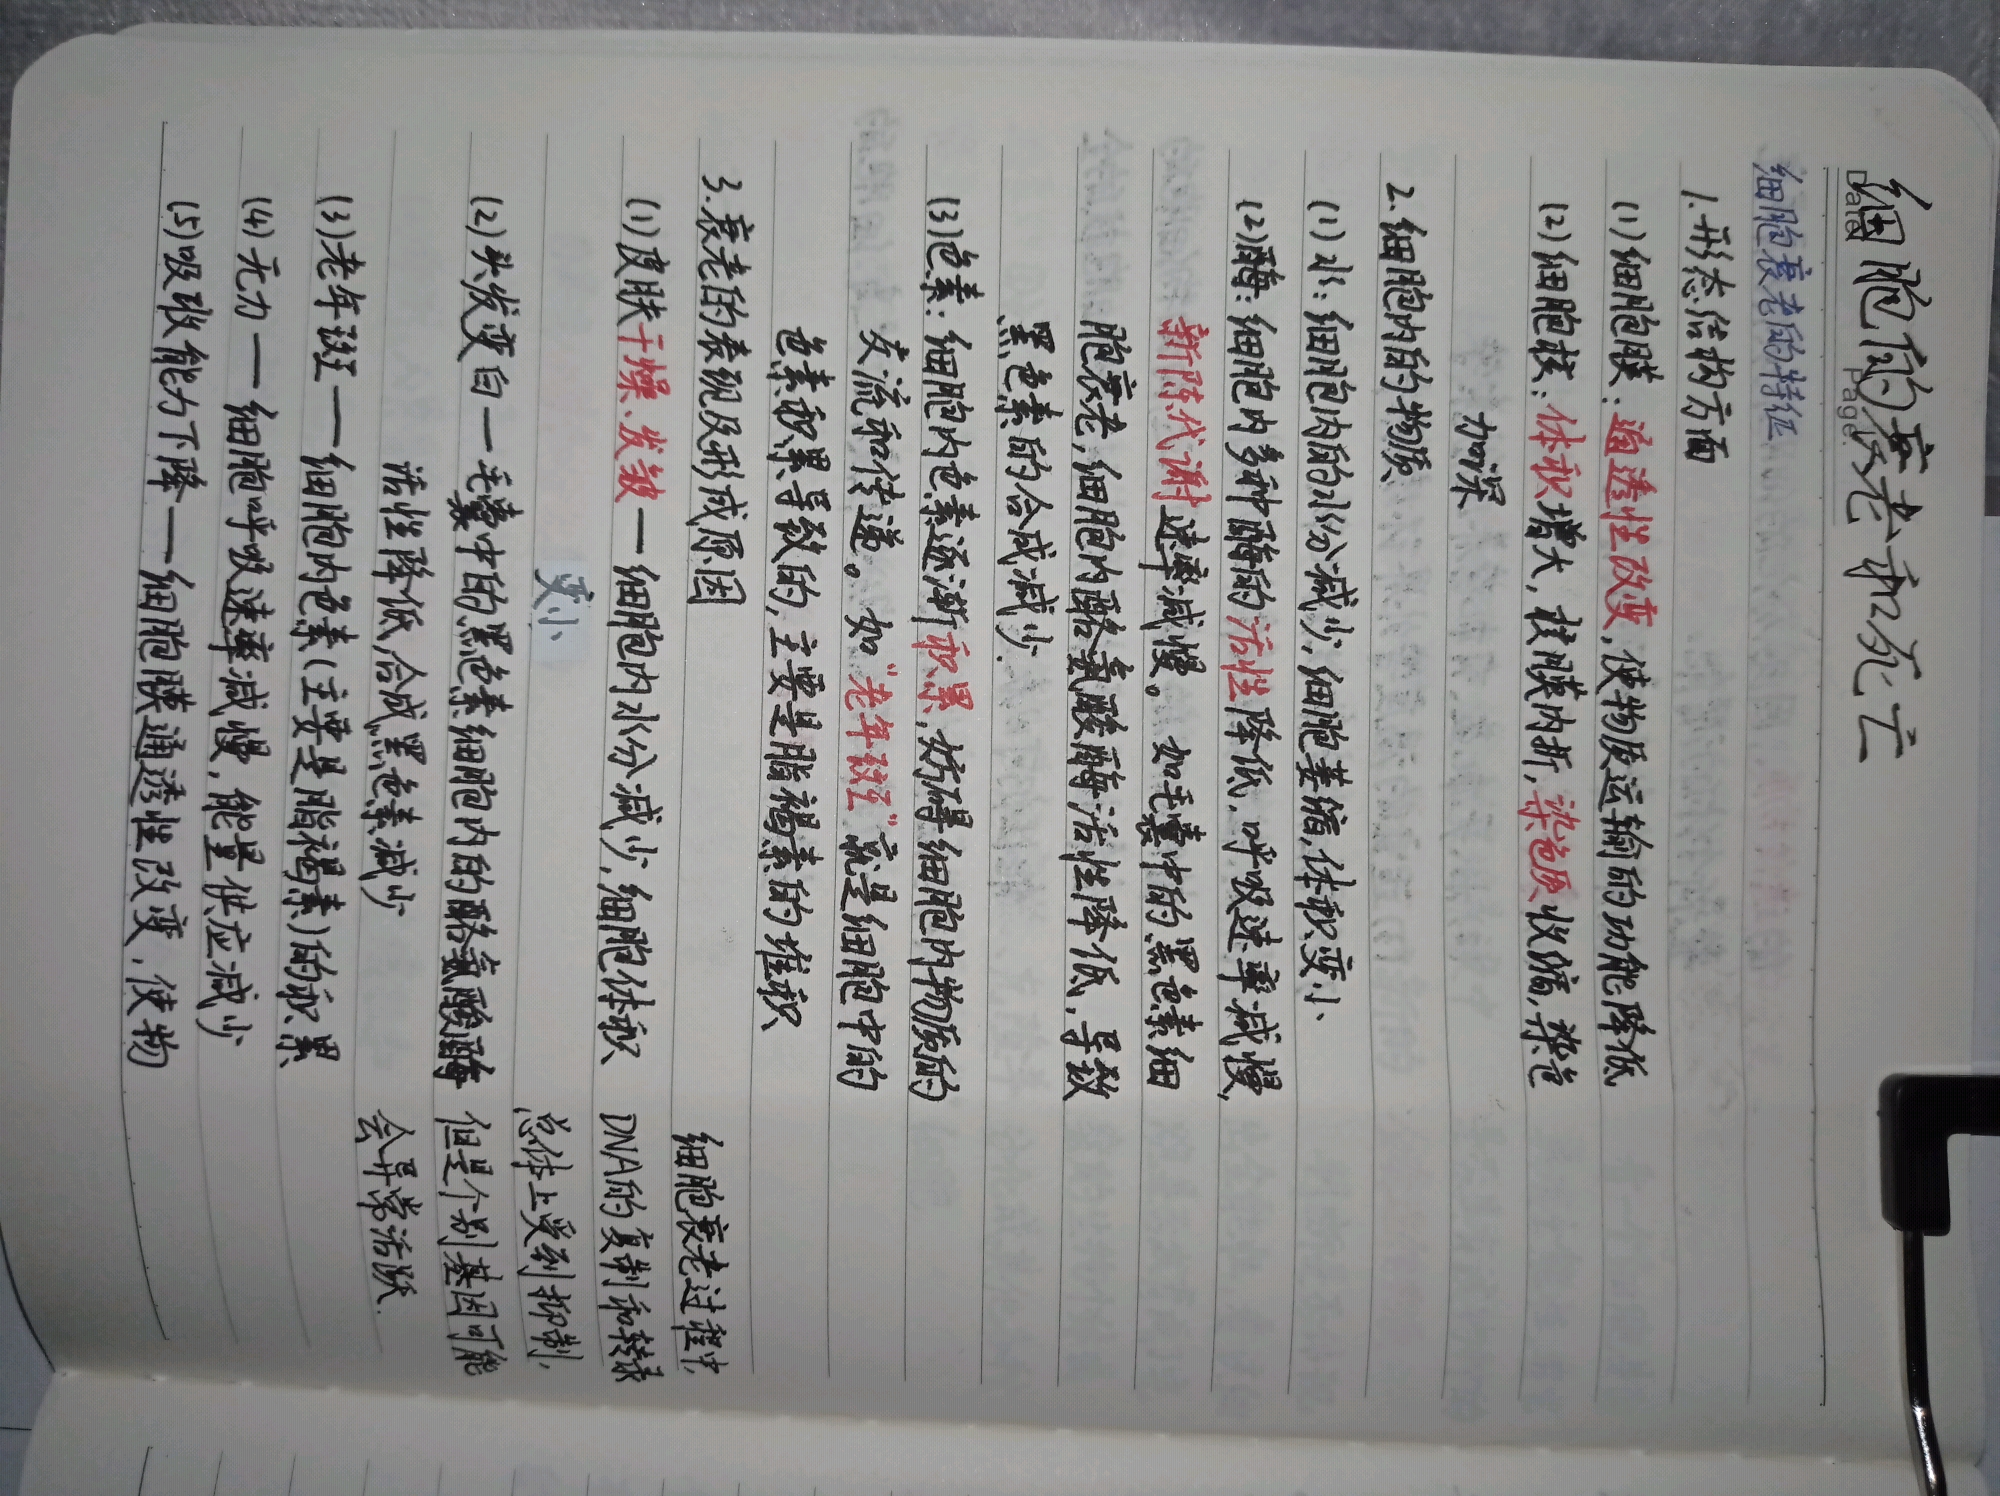 细胞的衰老和死亡
Date
Page
细胞衰老的特征
1.形态结构方面
(1)细胞膜:通透性改变,使物质运输的功能降低
(2)细胞核:体积增大,核膜内折,染色质收缩,染色
加深
2.细胞内的物质
(1)水:细胞内的水分减少,细胞萎缩,体积变小
(2)酶:细胞内多种酶的活性降低,呼吸速率减慢,
新陈代谢速率减慢。如毛囊中的黑色素细
胞衰老,细胞内酪氨酸酶活性降低,导致
黑色素的合成减少.
(3)色素:细胞内色素逐渐积累,妨碍细胞内物质的
交流和传递。如"老年斑"就是细胞中的
色素积累导致的,主要是脂褐素的堆积
3.衰老的表现及形成原因
(1)皮肤干燥、发皱—细胞内水分减少,细胞体积
变小
(2)头发变白—毛囊中的黑色素细胞内的酪氨酸酶
活性降低,合成黑色素减少
(3)老年斑—细胞内色素(主要是脂褐素)的积累
(4)无力—细胞呼吸速率减慢,能量供应减少
(5)吸收能力下降—细胞膜通透性改变,使物
细胞衰老过程中,
DNA的复制和转录
总体上受到抑制,
但是个别基因可能
会异常活跃.